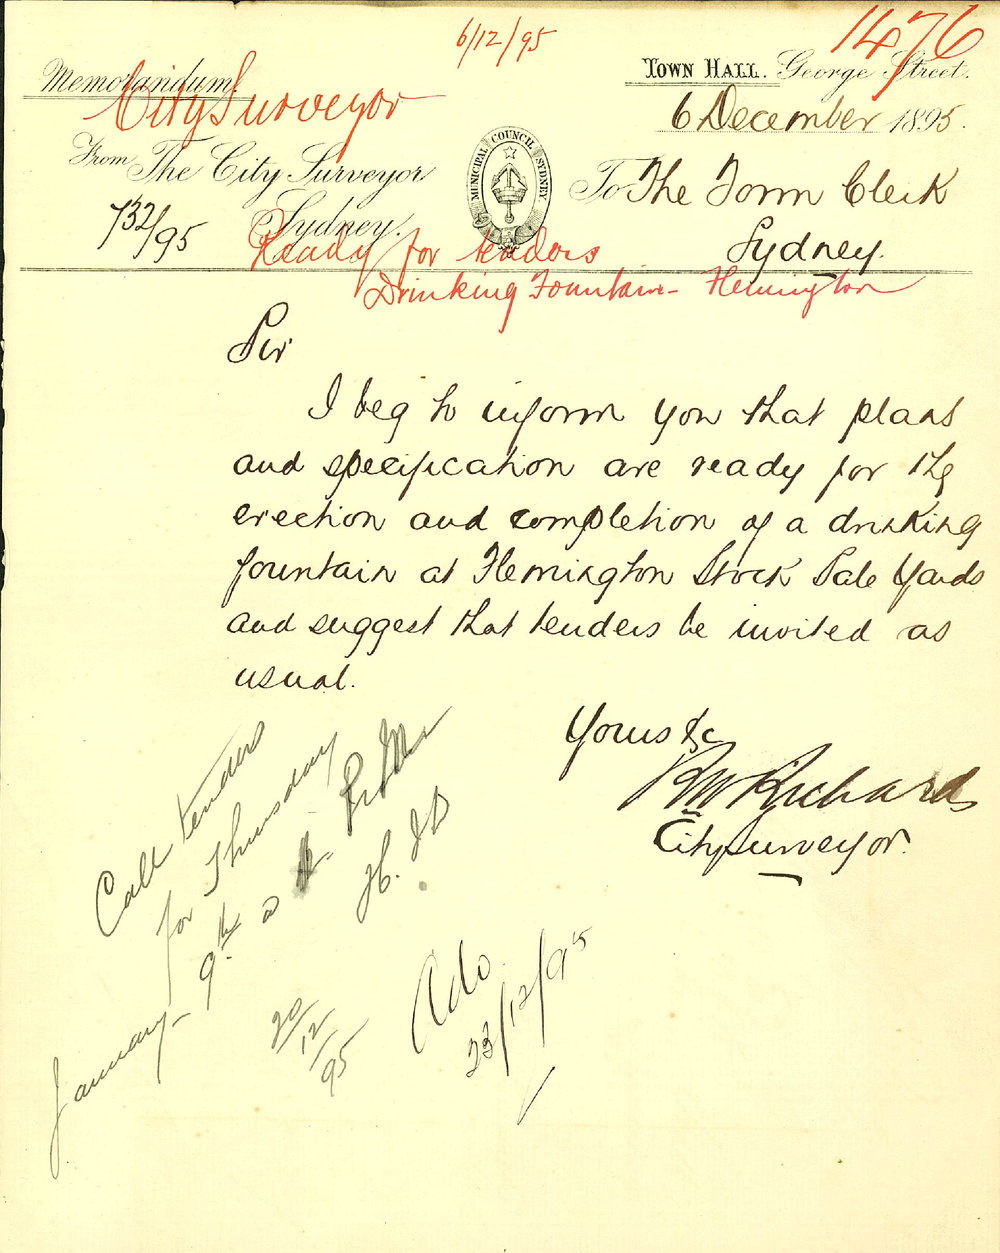 6/12/95
1476
Memorandum
TOWN HALL. George Street.
City Surveyor
6 December 1895.
From The City Surveyor
To The Town Clerk
MUNICIPAL COUNCIL SYDNEY
732/95
Sydney.
Sydney.
Ready for tenders
Drinking Fountain - Flemington
Sir
I beg to inform you that plans
and specification are ready for the
erection and completion of a drinking
fountain at Flemington Stock Sale Yards
and suggest that tenders be invited as
usual.
Yours &c
RW Richards
City Surveyor.
Call tenders
for Thursday
9th
January
20/12/95
Ado
23/12/95